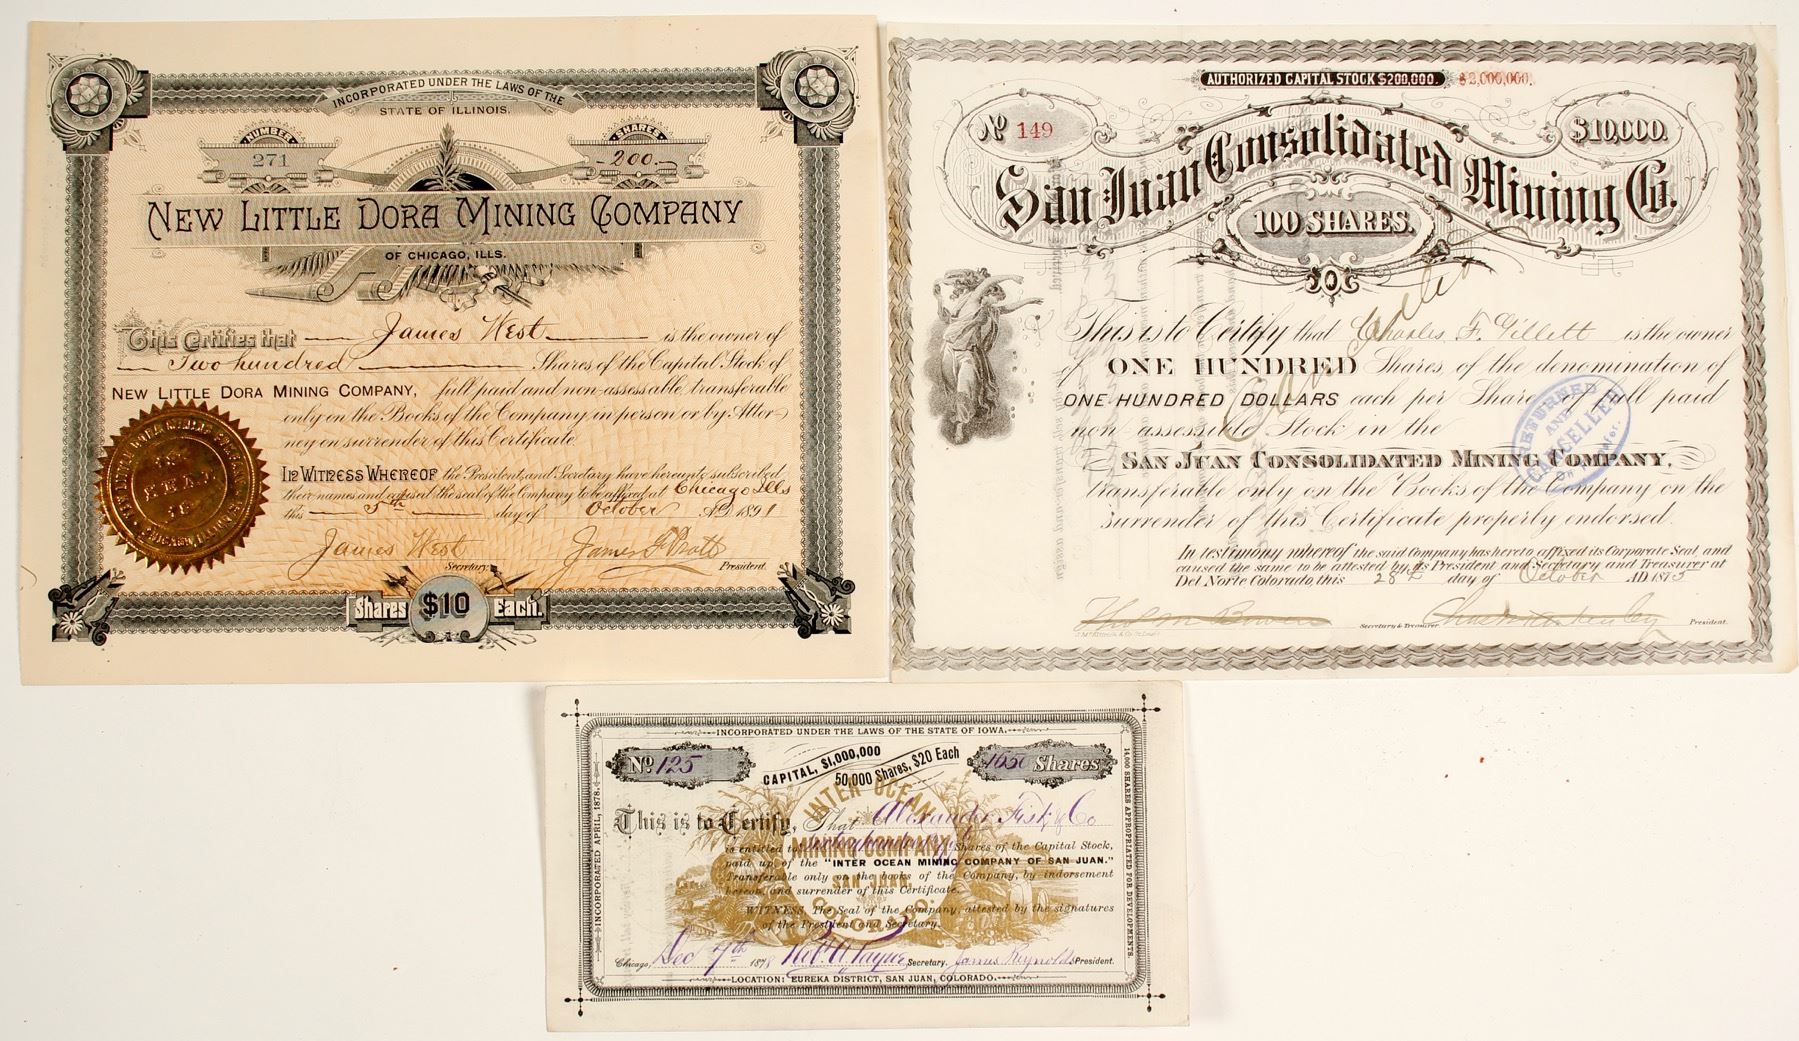 INCORPORATED UNDER THE LAWS OF THE
STATE OF ILLINOIS.
NUMBER
271
SHARES
200
NEW LITTLE DORA MINING COMPANY
OF CHICAGO, ILLS.
This Certifies that James West is the owner of
Two hundred Shares of the Capital Stock of
NEW LITTLE DORA MINING COMPANY, full paid and non-assessable, transferable
only on the Books of the Company in person or by Attor-
ney on surrender of this Certificate
IN WITNESS WHEREOF the President and Secretary have hereunto subscribed
their names and the seal of the Company to be affixed at Chicago Ills
this 5th day of October AD 1891
James West Secretary. James Pratt President.
SEAL
Shares $10 Each.
AUTHORIZED CAPITAL STOCK $200,000. $2,000,000.
No 149
$10,000.
San Juan Consolidated Mining Co.
100 SHARES.
This is to Certify that Charles F. Gillett is the owner
of ONE HUNDRED Shares of the denomination of
ONE HUNDRED DOLLARS each per Share of full paid
non-assessible Stock in the
SAN JUAN CONSOLIDATED MINING COMPANY,
transferable only on the Books of the Company on the
surrender of this Certificate properly endorsed.
In testimony whereof the said Company has hereto affixed its Corporate Seal, and
caused the same to be attested by its President and Secretary and Treasurer at
Del Norte Colorado, this 28th day of October AD 1875
Secretary & Treasurer. President.
RETURNED
AND
CANCELLED
INCORPORATED UNDER THE LAWS OF THE STATE OF IOWA.
No. 125
CAPITAL, $1,000,000
50,000 Shares, $20 Each
1650 Shares
INTER OCEAN
MINING COMPANY
SAN JUAN
COLORADO.
This is to Certify, That Alexander Fisk & Co
is entitled to Shares of the Capital Stock,
paid up of the "INTER OCEAN MINING COMPANY OF SAN JUAN."
Transferable only on the books of the Company, by indorsement
hereon, and surrender of this Certificate.
WITNESS, The Seal of the Company, attested by the signatures
of the President and Secretary.
Chicago, Dec 7th 1878 Secretary. James Reynolds President.
LOCATION: EUREKA DISTRICT, SAN JUAN, COLORADO.
INCORPORATED APRIL, 1878.
14,000 SHARES APPROPRIATED FOR DEVELOPMENTS.